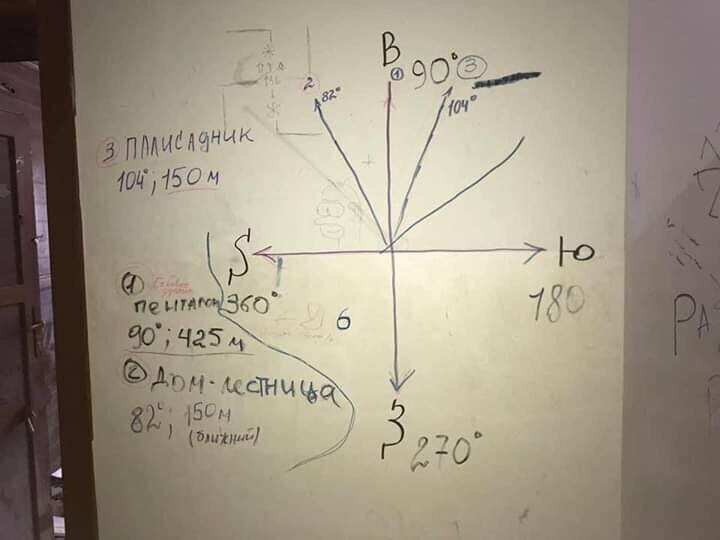 В
① 90° ③
2
82°
104°
3 ПАЛИСАДНИК
104°; 150 м
Ю
180
①
ПЕНТАГОН 360°
90°; 425 м
6
② ДОМ-ЛЕСТНИЦА
82°; 150м
(ближний)
З
270°
РА